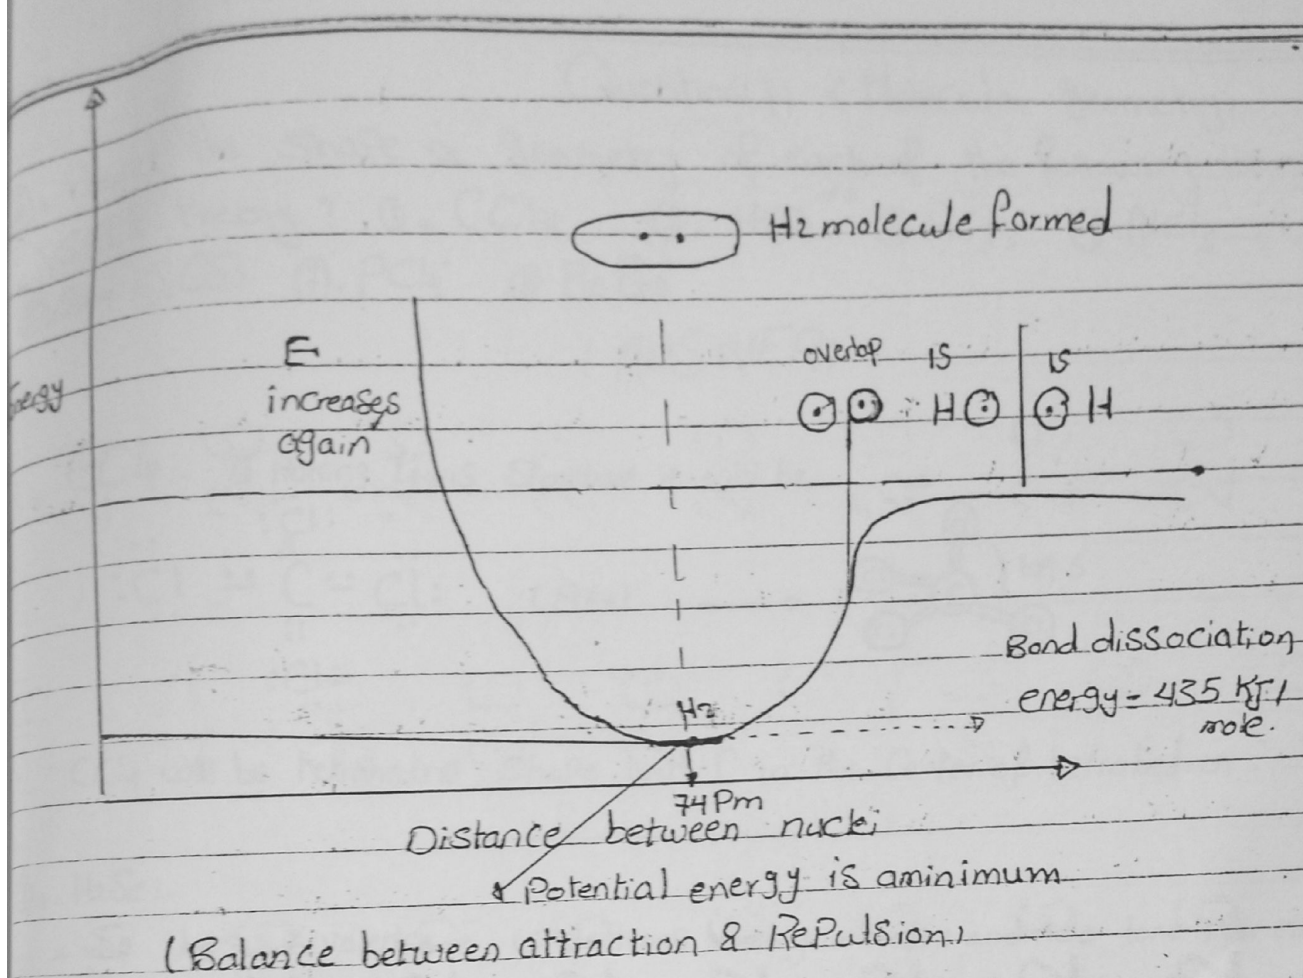 H2 molecule formed
E
increases
again
overlap 1S 1S
H H
Bond dissociation
energy = 435 KJ/
mole.
H2
74 Pm
Distance between nuclei
Potential energy is aminimum
(Balance between attraction & RePulsion)